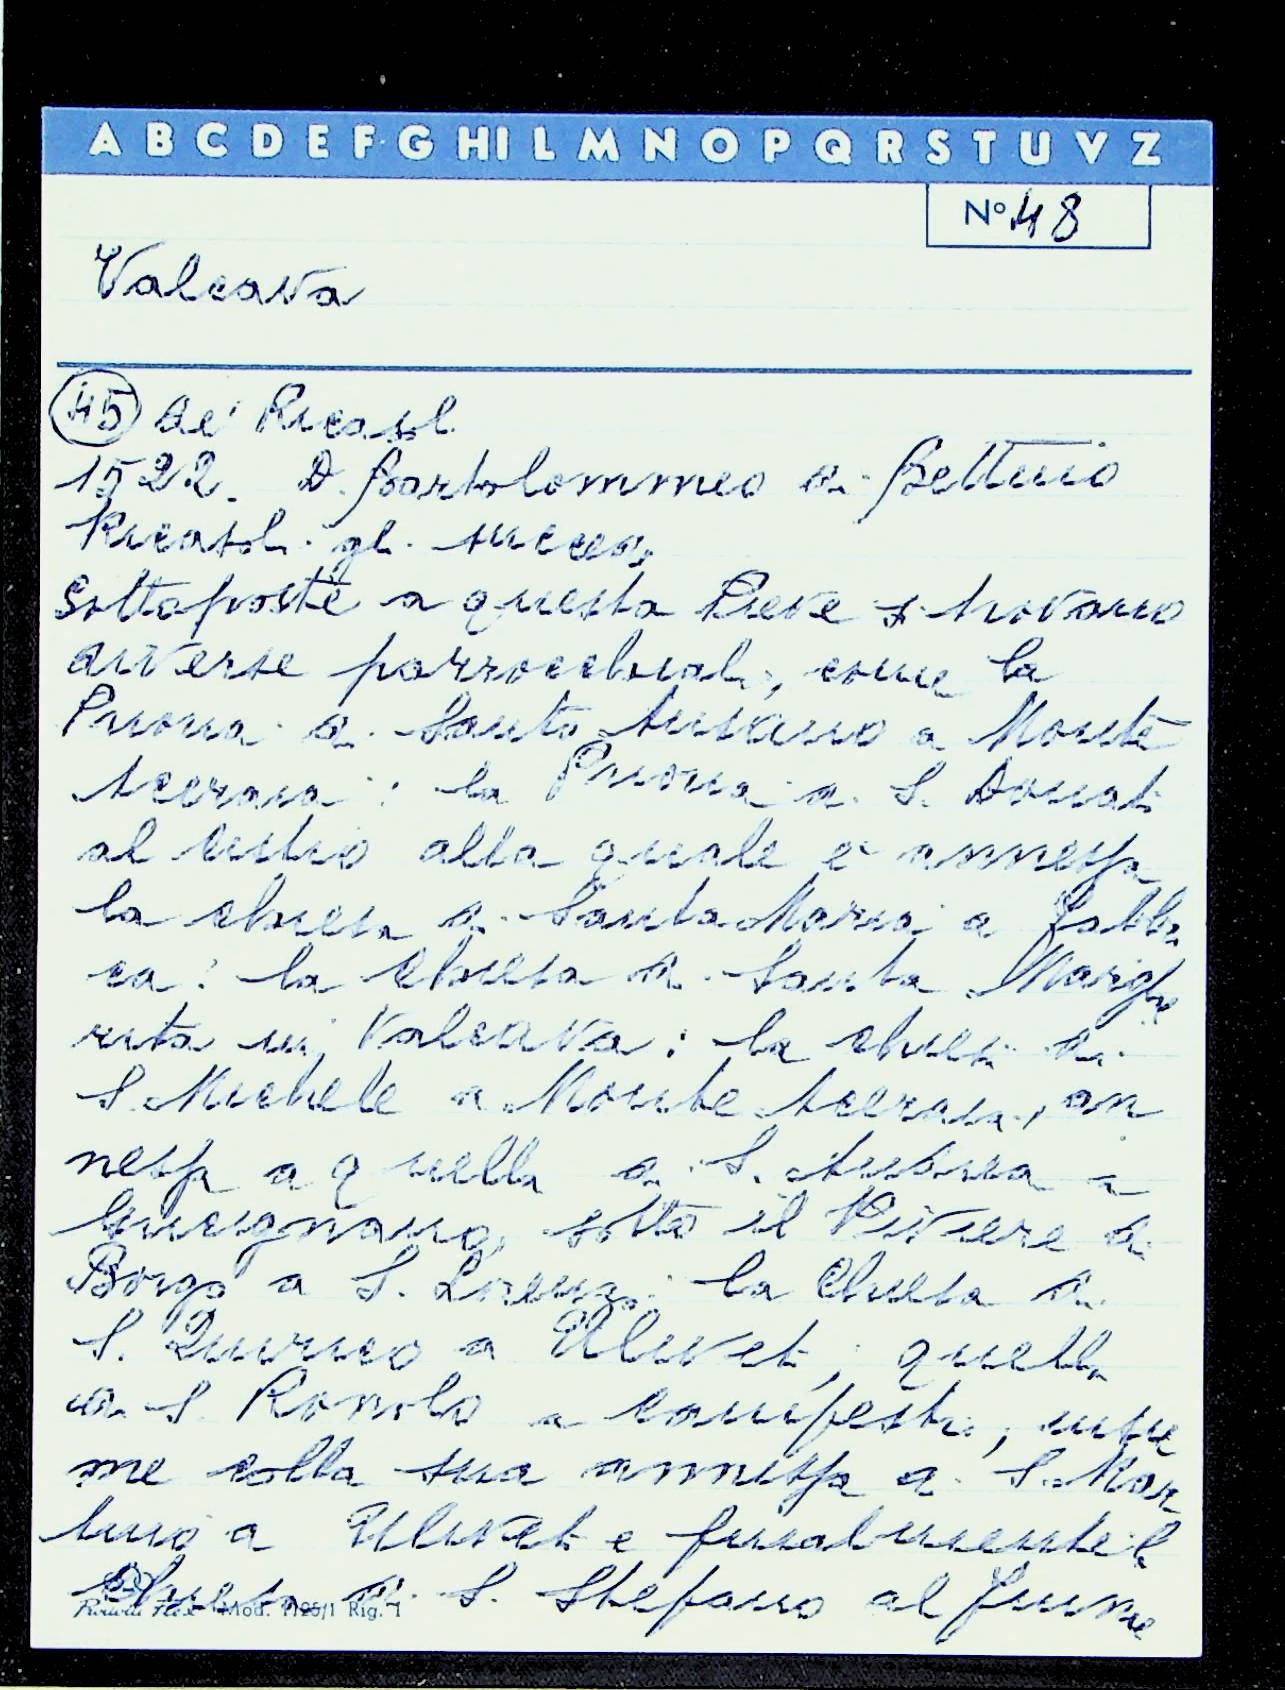 A B C D E F G H I L M N O P Q R S T U V Z
Nº 48
Valcava
45 de' Ricasol.
1522. D. Bartolommeo di Bettino
Ricasoli gli success.
Sottoposte a questa Pieve si trovano
diverse parrocchiali, come la
Prioria di Santo a Monte
Acceraia: la Prioria di S. Donato
al Cistio alla quale è annessa
la chiesa di Santa Maria a Fabbri
ca: la Chiesa di Santa Marghe
rita in Valcava: la chiesa di
S. Michele a Monte Acceraia, an
nessa a quella di S. Andrea a
Gricignano, sotto il Piviere di
Borgo a S. Lorenzo: la Chiesa di
S. Quirico a Uliveto; quella
di S. Romolo a Campestri, insie
me colla sua annessa di S. Mar
tino a Uliveto e finalmente la
Chiesa di S. Stefano al fiume
Mod. 1125/1 Rig. 1